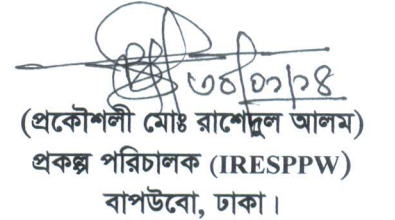 ৩০/০১/২৪
(প্রকৌশলী মোঃ রাশেদুল আলম)
প্রকল্প পরিচালক (IRESPPW)
বাপউবো, ঢাকা।